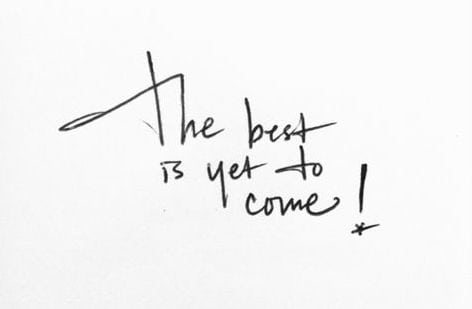 The best
is yet to
come!